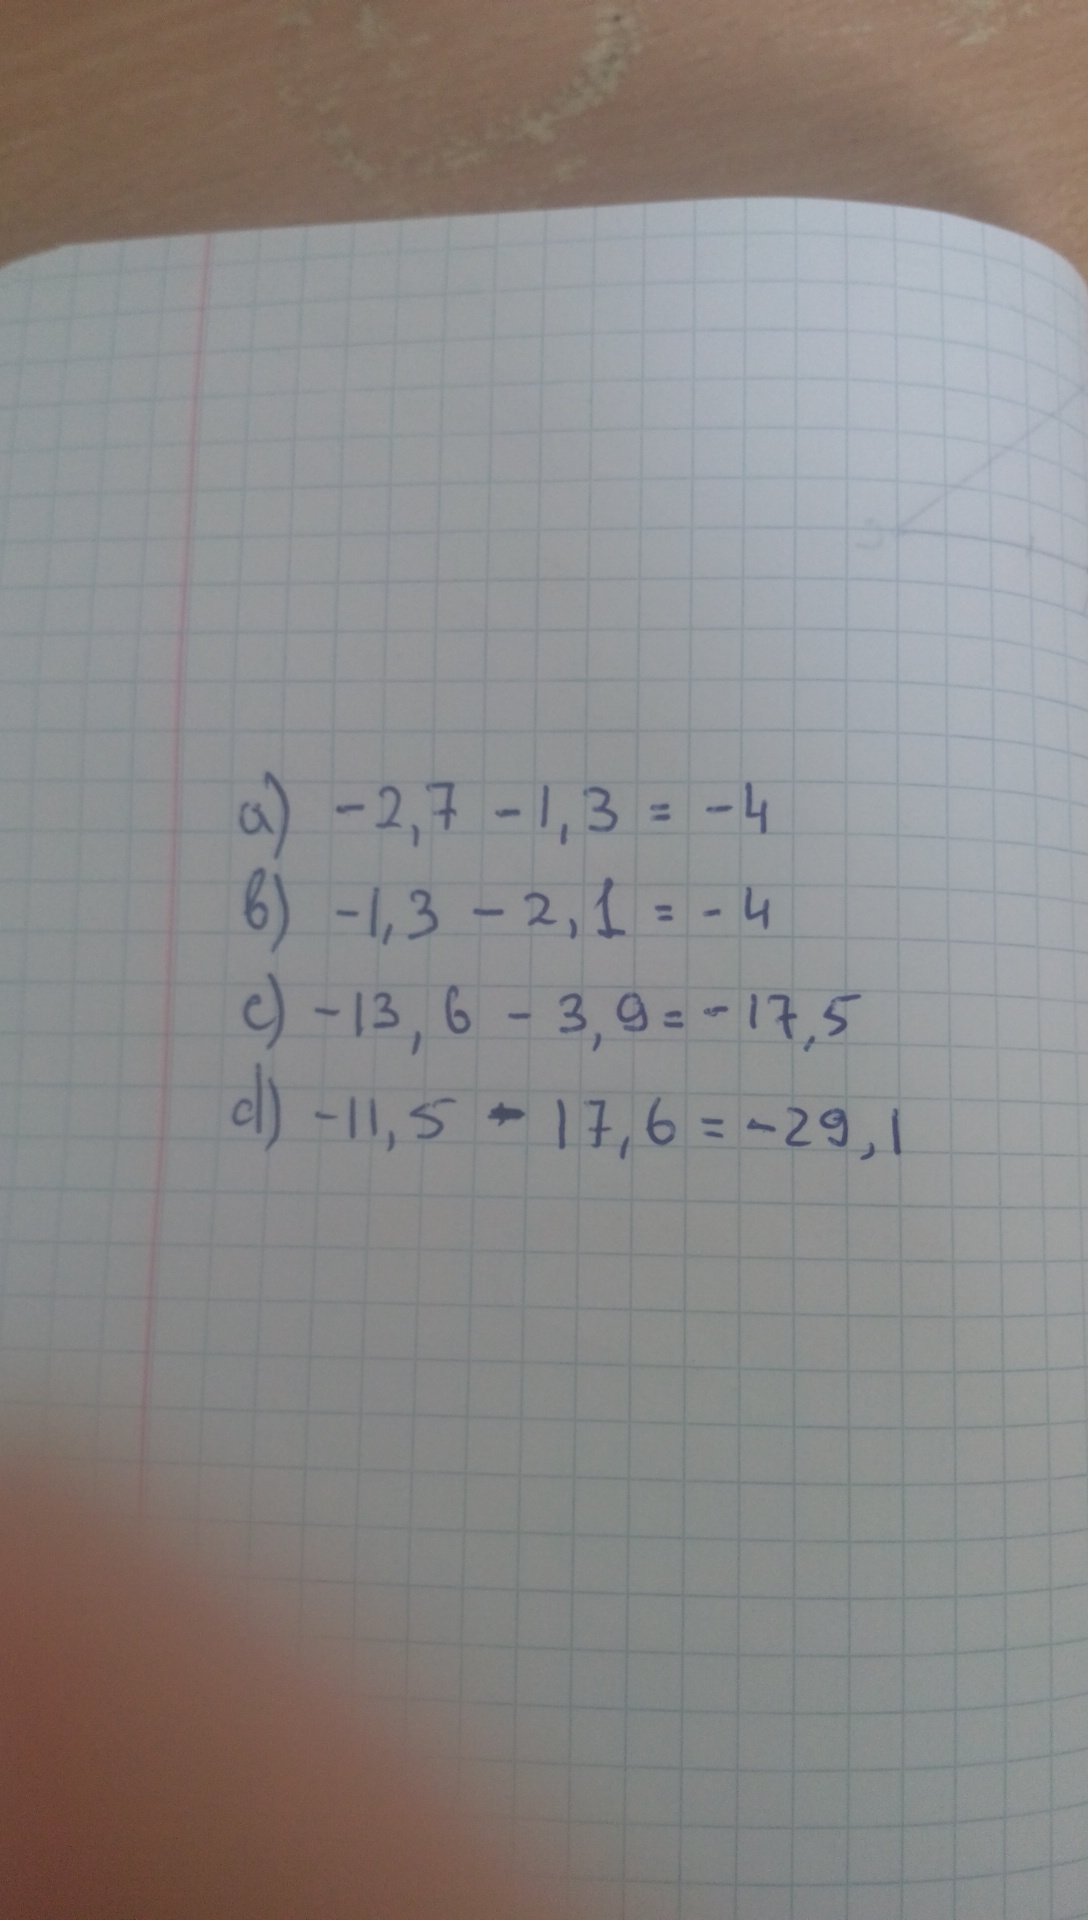 a) -2,7 - 1,3 = -4
b) -1,3 - 2,1 = -4
c) -13,6 - 3,9 = -17,5
d) -11,5 - 17,6 = -29,1